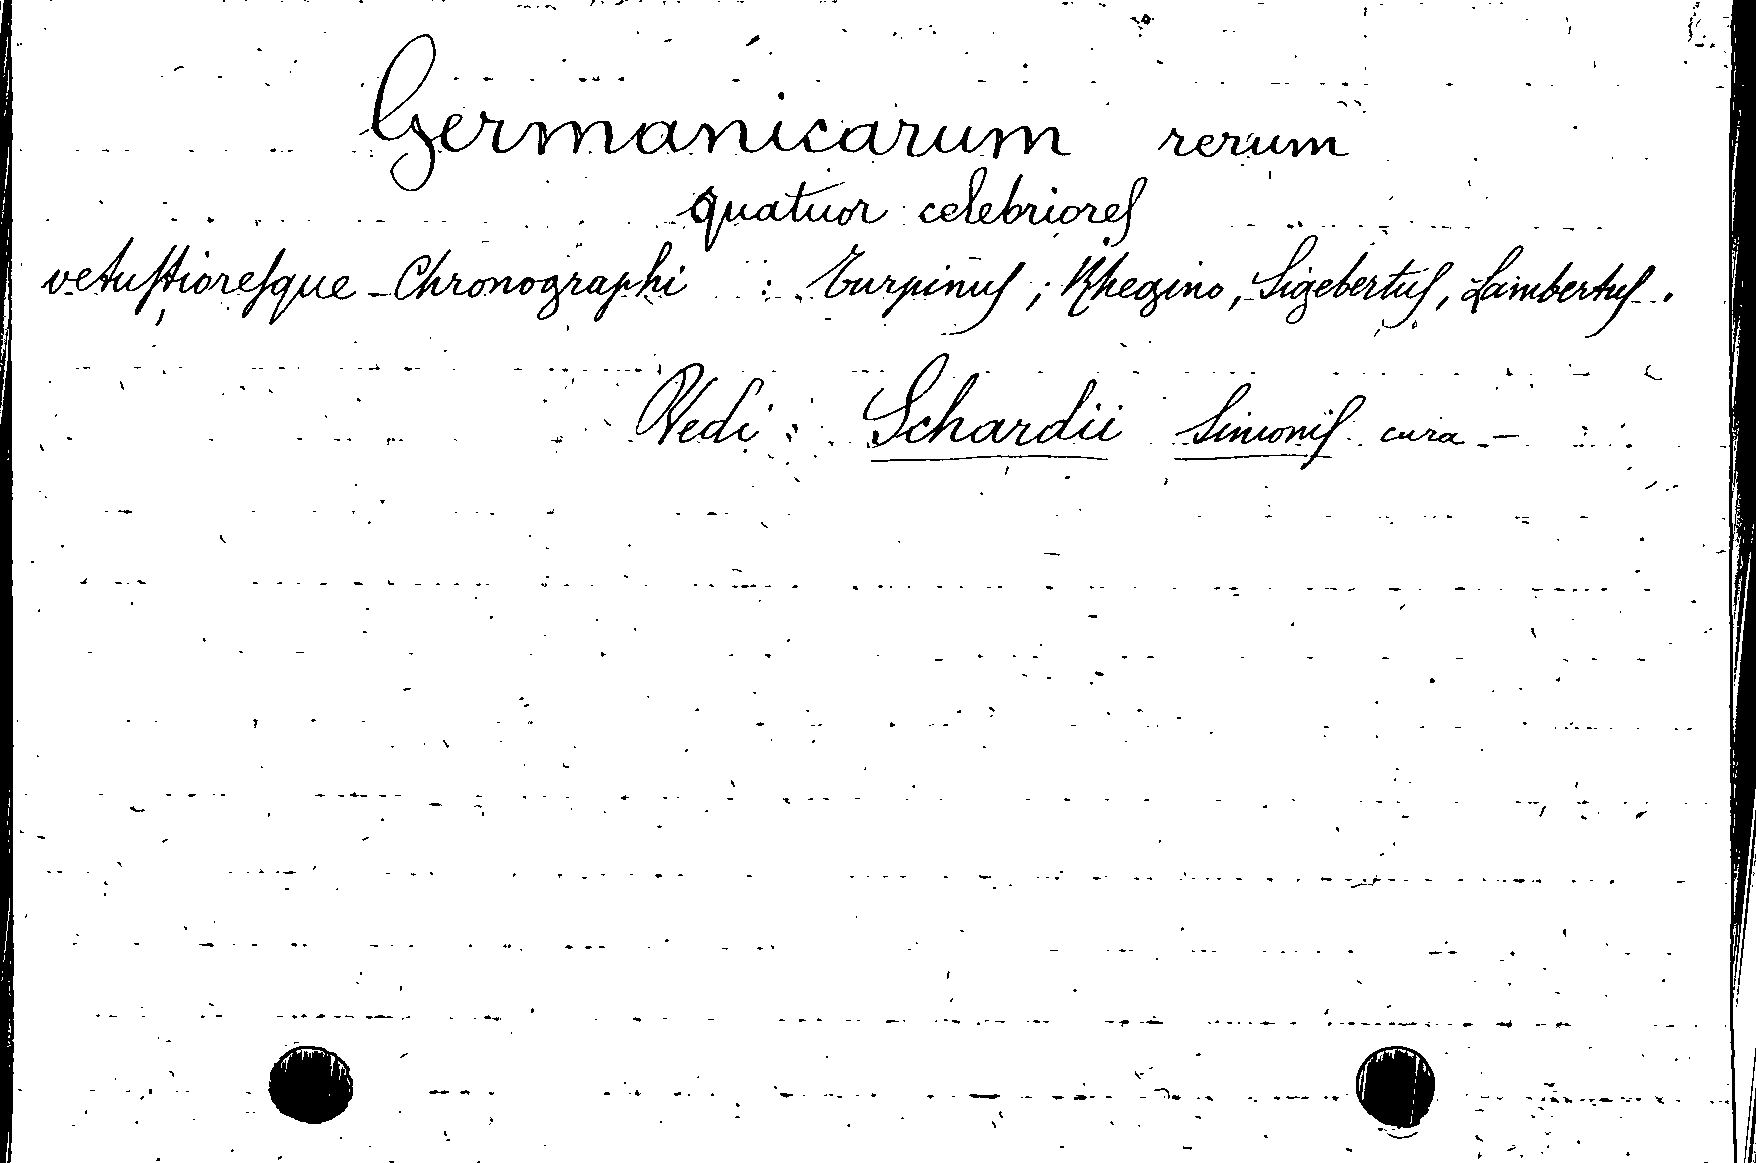 Germanicarum rerum
quatuor celebriores
vetustioresque Chronographi : Turpinus ; Rhegino, Sigebertus, Lambertus.
Vedi : Schardii Simonis cura -